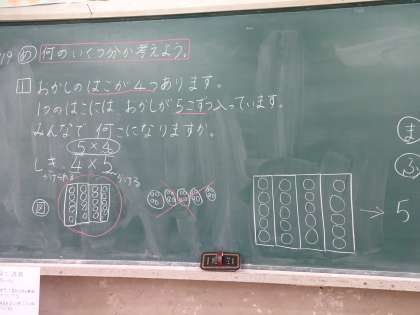 19 め 何のいくつ分か考えよう。
1 おかしのはこが4つあります。
1つのはこには おかしが5こずつ入っています。
みんなで 何こになりますか。
5×4
しき、4×5
図
→ 5
ま
ふ